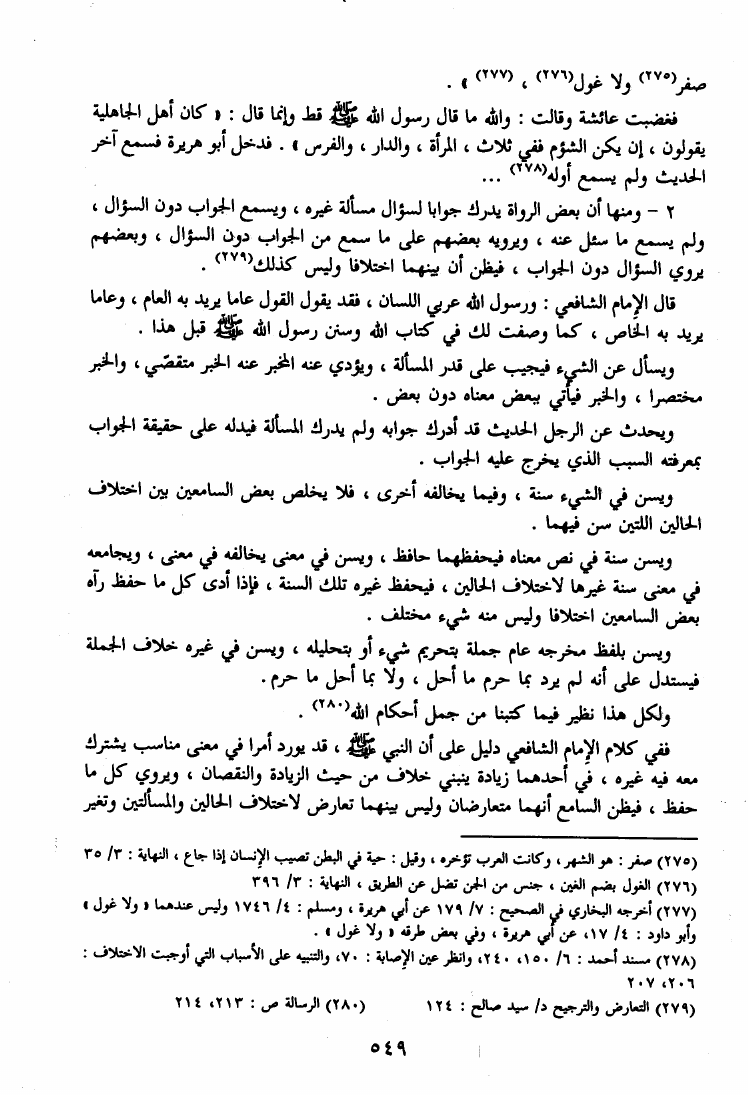 صفر(٢٧٥) ولا غول(٢٧٦) ، (٢٧٧) » .
فغضبت عائشة وقالت : والله ما قال رسول الله ﷺ قط وإنما قال : « كان أهل الجاهلية
يقولون ، إن يكن الشؤم ففي ثلاث ، المرأة ، والدار ، والفرس » . فدخل أبو هريرة فسمع آخر
الحديث ولم يسمع أوله(٢٧٨) ...
٢ – ومنها أن بعض الرواة يدرك جوابا لسؤال مسألة غيره ، ويسمع الجواب دون السؤال ،
ولم يسمع ما سئل عنه ، ويرويه بعضهم على ما سمع من الجواب دون السؤال ، وبعضهم
يروي السؤال دون الجواب ، فيظن أن بينهما اختلافا وليس كذلك(٢٧٩) .
قال الإمام الشافعي : ورسول الله عربي اللسان ، فقد يقول القول عاما يريد به العام ، وعاما
يريد به الخاص ، كما وصفت لك في كتاب الله وسنن رسول الله ﷺ قبل هذا .
ويسأل عن الشيء فيجيب على قدر المسألة ، ويؤدي عنه المخبر عنه الخبر متقصّي ، والخبر
مختصرا ، والخبر فيأتي ببعض معناه دون بعض .
ويحدث عن الرجل الحديث قد أدرك جوابه ولم يدرك المسألة فيدله على حقيقة الجواب
بمعرفته السبب الذي يخرج عليه الجواب .
ويسن في الشيء سنة ، وفيما يخالفه أخرى ، فلا يخلص بعض السامعين بين اختلاف
الحالين اللتين سن فيهما .
ويسن سنة في نص معناه فيحفظهما حافظ ، ويسن في معنى يخالفه في معنى ، ويجامعه
في معنى سنة غيرها لاختلاف الحالين ، فيحفظ غيره تلك السنة ، فإذا أدى كل ما حفظ رآه
بعض السامعين اختلافا وليس منه شيء مختلف .
ويسن بلفظ مخرجه عام جملة بتحريم شيء أو بتحليله ، ويسن في غيره خلاف الجملة
فيستدل على أنه لم يرد بما حرم ما أحل ، ولا بما أحل ما حرم .
ولكل هذا نظير فيما كتبنا من جمل أحكام الله(٢٨٠) .
ففي كلام الإمام الشافعي دليل على أن النبي ﷺ ، قد يورد أمرا في معنى مناسب يشترك
معه فيه غيره ، في أحدهما زيادة ينبني خلاف من حيث الزيادة والنقصان ، ويروي كل ما
حفظ ، فيظن السامع أنهما متعارضان وليس بينهما تعارض لاختلاف الحالين والمسألتين وتغير
(٢٧٥) صفر : هو الشهر ، وكانت العرب تؤخره ، وقيل : حية في البطن تصيب الإنسان إذا جاع ، النهاية : ٣/ ٣٥
(٢٧٦) الغول بضم الغين ، جنس من الجن تضل عن الطريق ، النهاية : ٣/ ٣٩٦
(٢٧٧) أخرجه البخاري في الصحيح : ٧/ ١٧٩ عن أبي هريرة ، ومسلم : ٤/ ١٧٤٦ وليس عندهما « ولا غول »
وأبو داود : ٤/ ١٧، عن أبي هريرة ، وفي بعض طرقه « ولا غول » .
(٢٧٨) مسند أحمد : ٦/ ١٥٠، ٢٤٠، وانظر عين الإصابة : ٧٠، والتنبيه على الأسباب التي أوجبت الاختلاف :
٢٠٦، ٢٠٧
(٢٧٩) التعارض والترجيح د/ سيد صالح : ١٢٤ (٢٨٠) الرسالة ص : ٢١٣، ٢١٤
٥٤٩